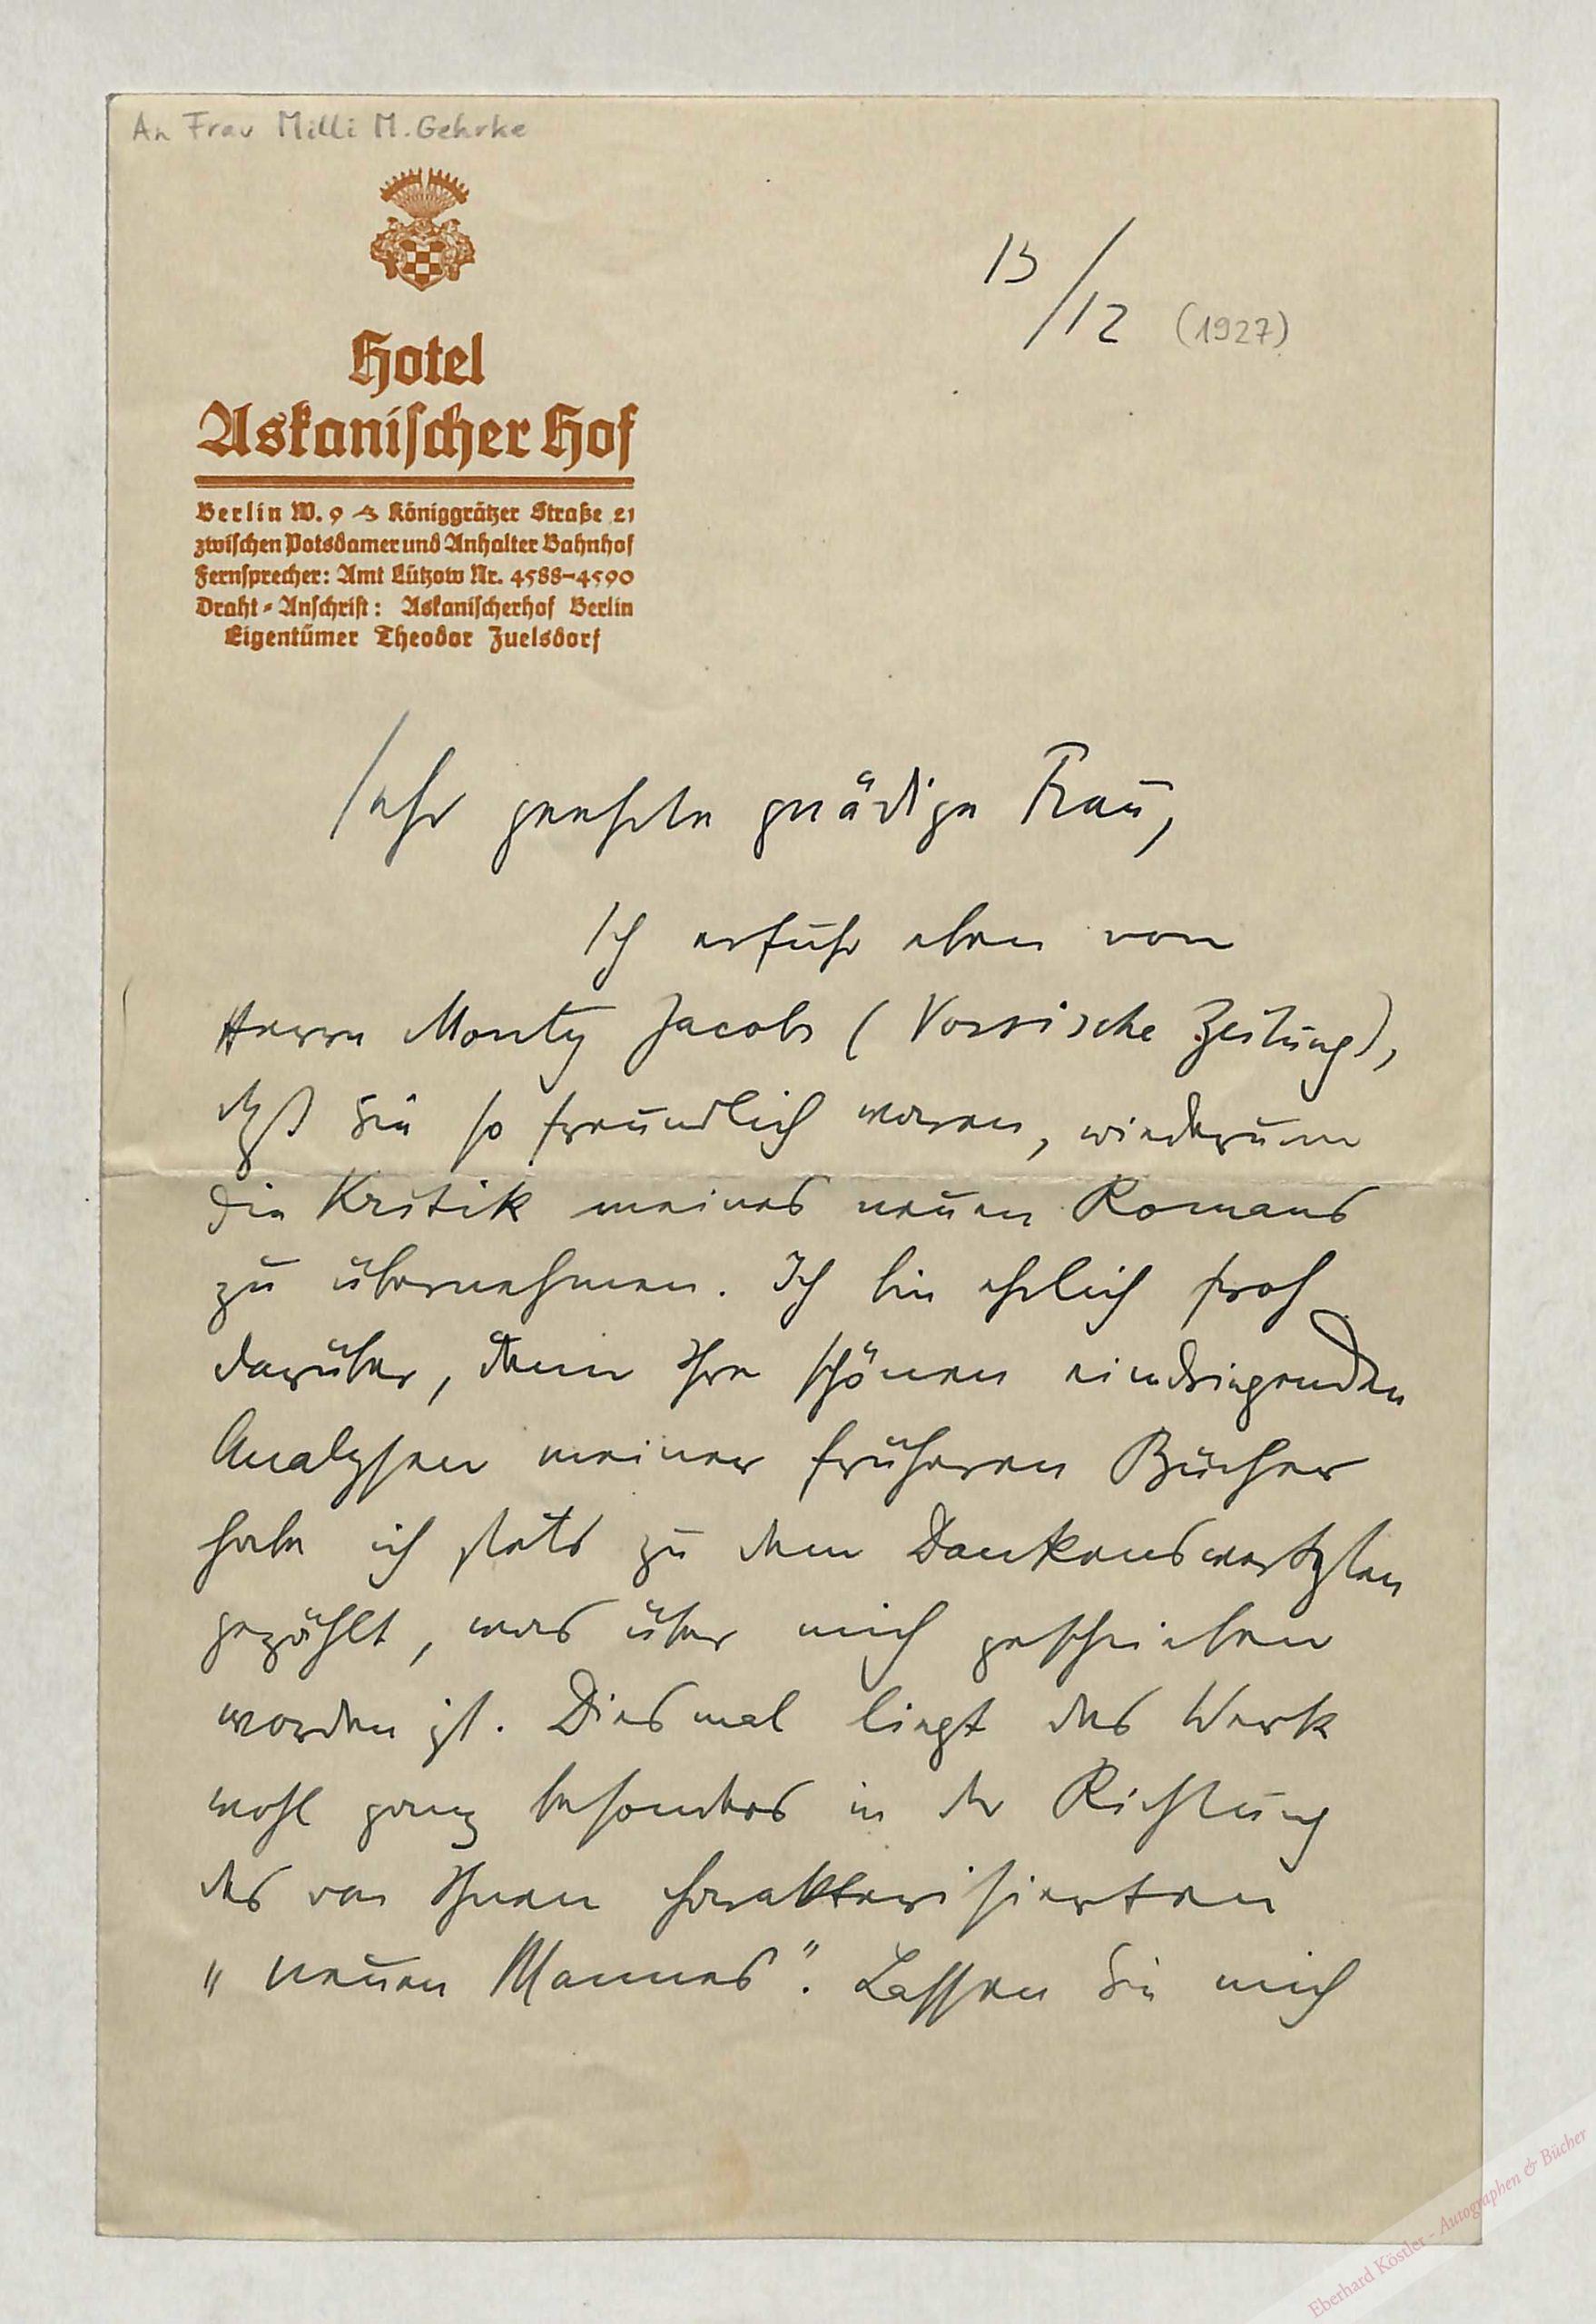 An Frau Milli M. Gehrke
13/12 (1927)
Hotel
Askanischer Hof
Berlin W. 9 Königgrätzer Straße 21
zwischen Potsdamer und Anhalter Bahnhof
Fernsprecher: Amt Lützow Nr. 4588-4590
Draht-Anschrift: Askanischerhof Berlin
Eigentümer Theodor Zuelsdorf
Sehr geehrte gnädige Frau,
Ich erfuhr eben von
Herrn Monty Jacobs (Vossische Zeitung),
daß Sie so freundlich waren, wiederum
die Kritik meines neuen Romans
zu übernehmen. Ich bin ehrlich froh
darüber, denn Ihre schönen eindringenden
Analysen meiner früheren Bücher
habe ich stets zu dem Dankenswertesten
gezählt, was über mich geschrieben
worden ist. Diesmal liegt das Werk
wohl ganz besonders in der Richtung
des von Ihnen charakterisierten
„neuen Mannes". Lassen Sie mich
Eberhard Köstler - Autographen & Bücher